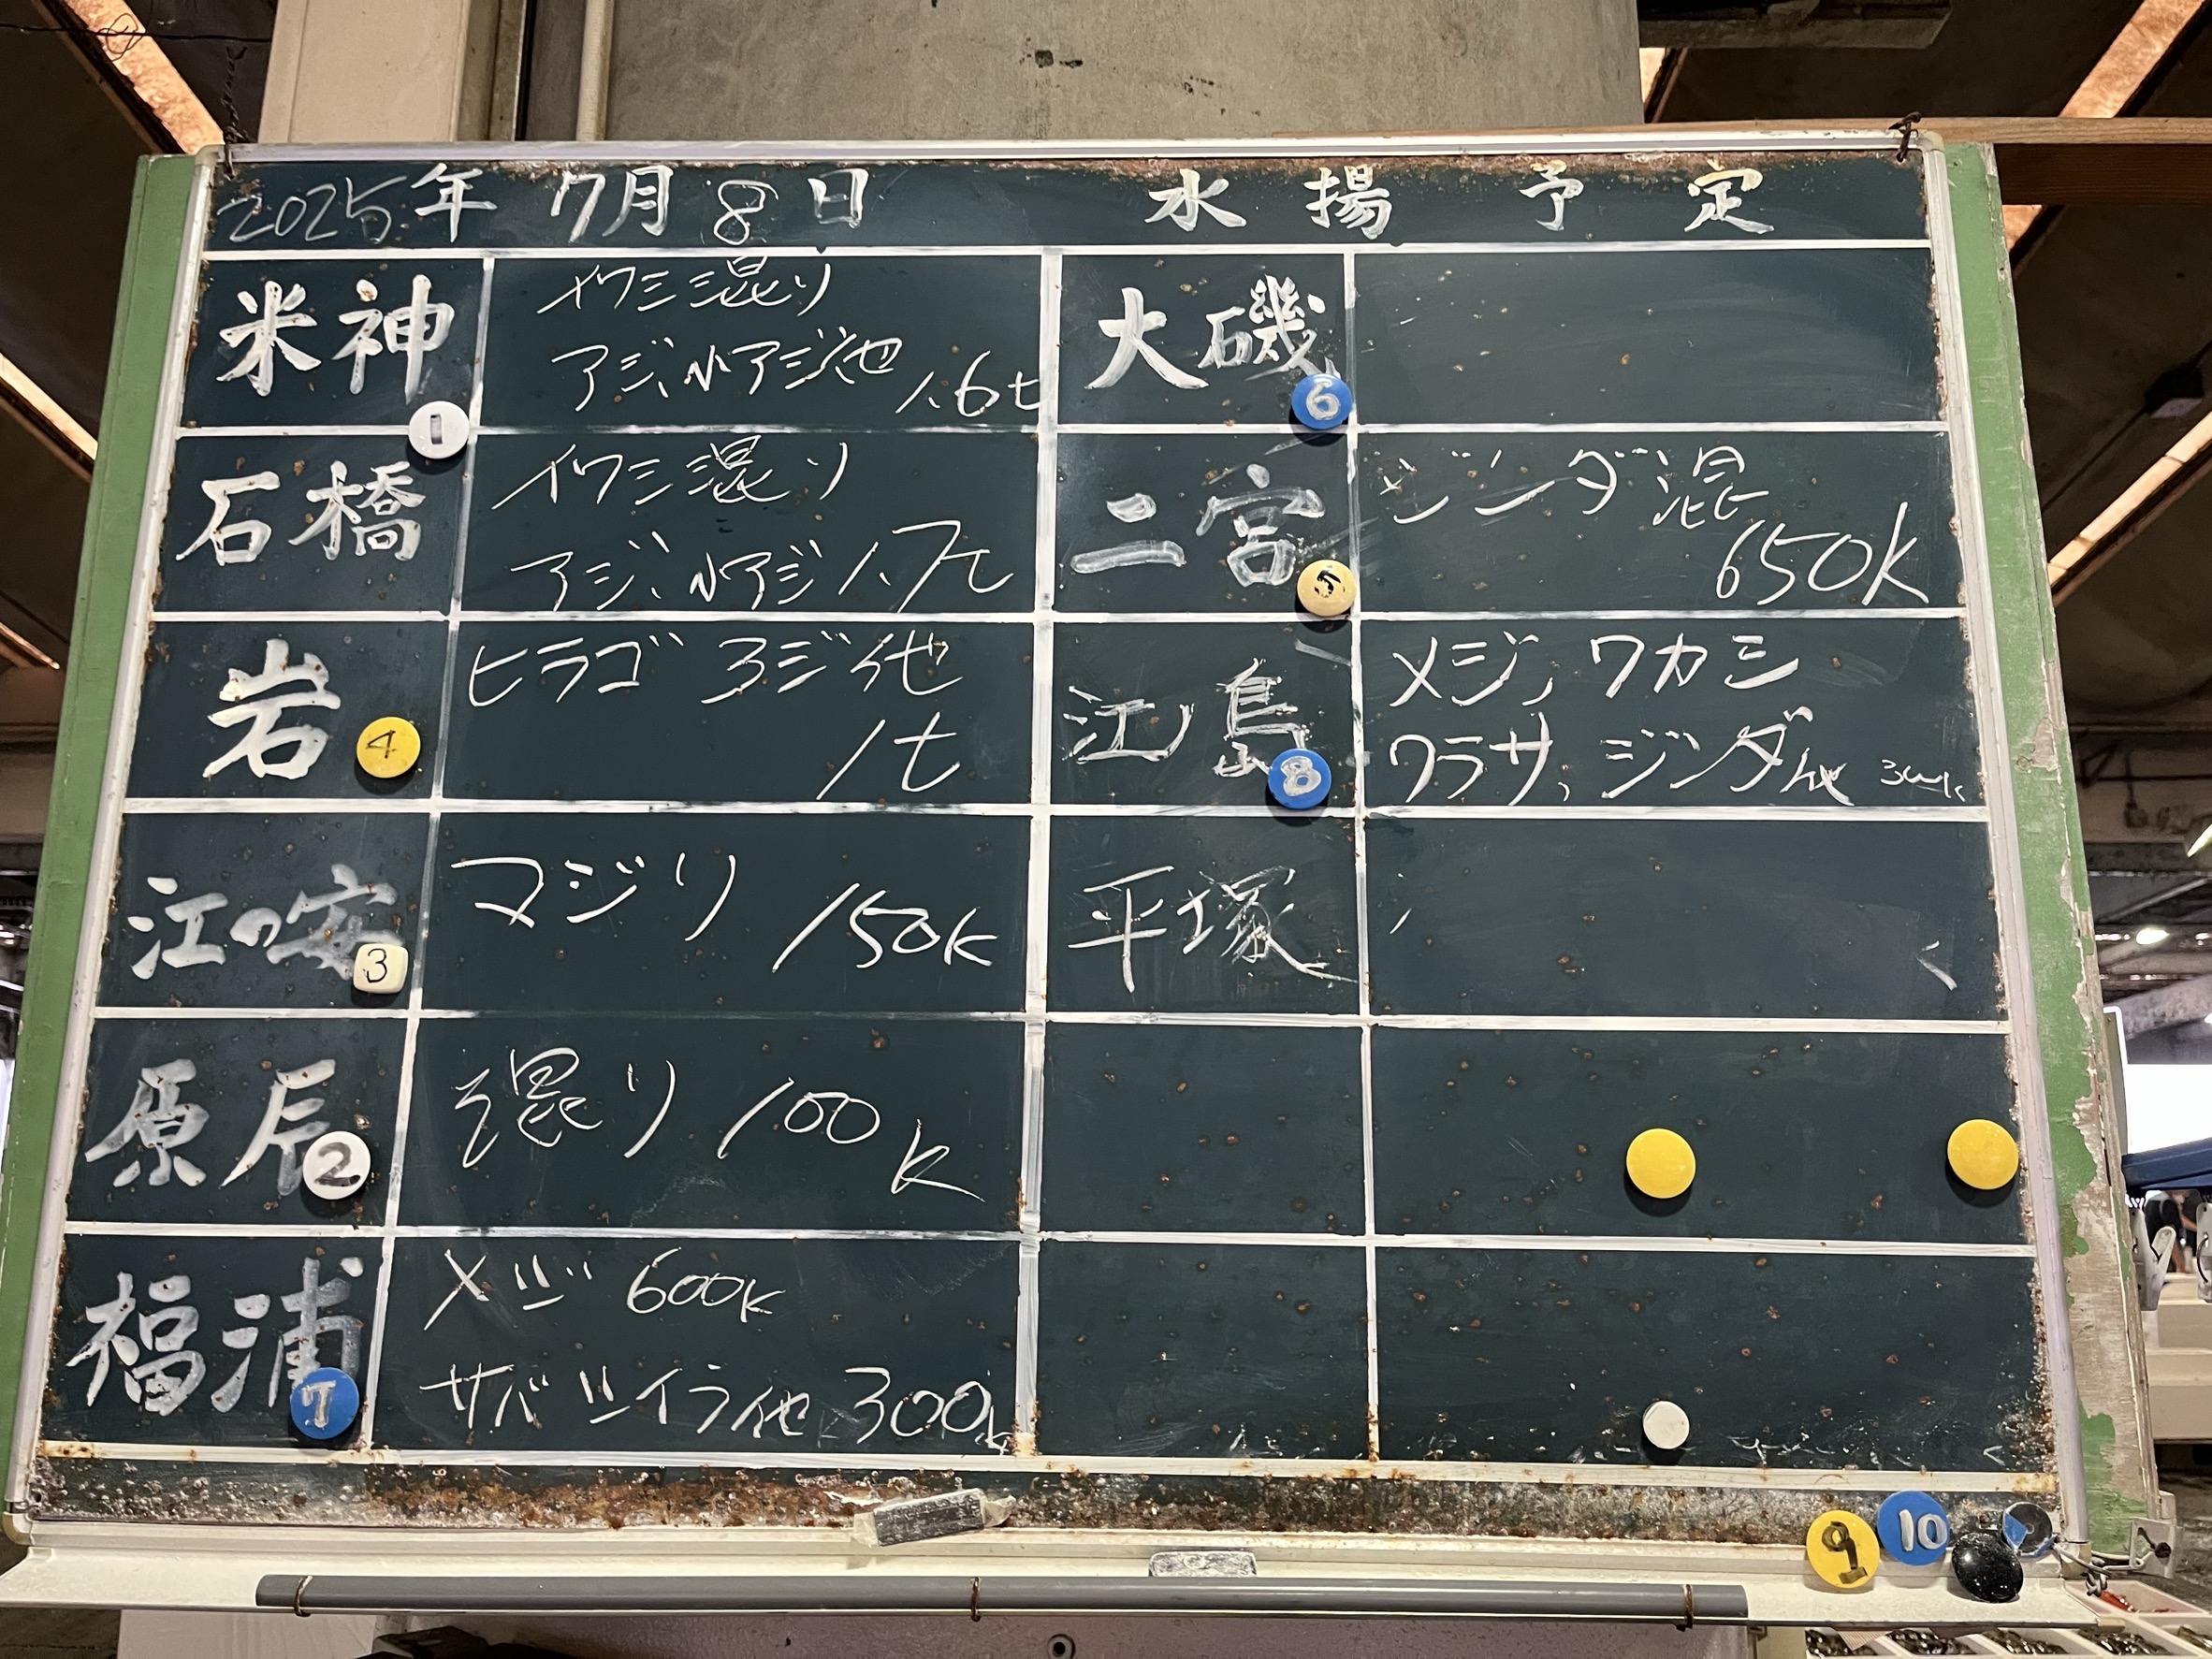 2025年 7月 8日 水揚予定
米神
1
イワシ混り
アジ、小アジ他 1.6t
石橋
イワシ混り
アジ、小アジ 1.7t
岩
4
ヒラゴ アジ他
1t
江の安
3
マジリ 150K
原辰
2
混り 100K
福浦
7
メジ 600K
サバ ツイラ他 300K
大磯
6
二宮
5
ジンダ混
650K
江ノ島
8
メジ, ワカシ
ワラサ, ジンダ他
平塚
9
10